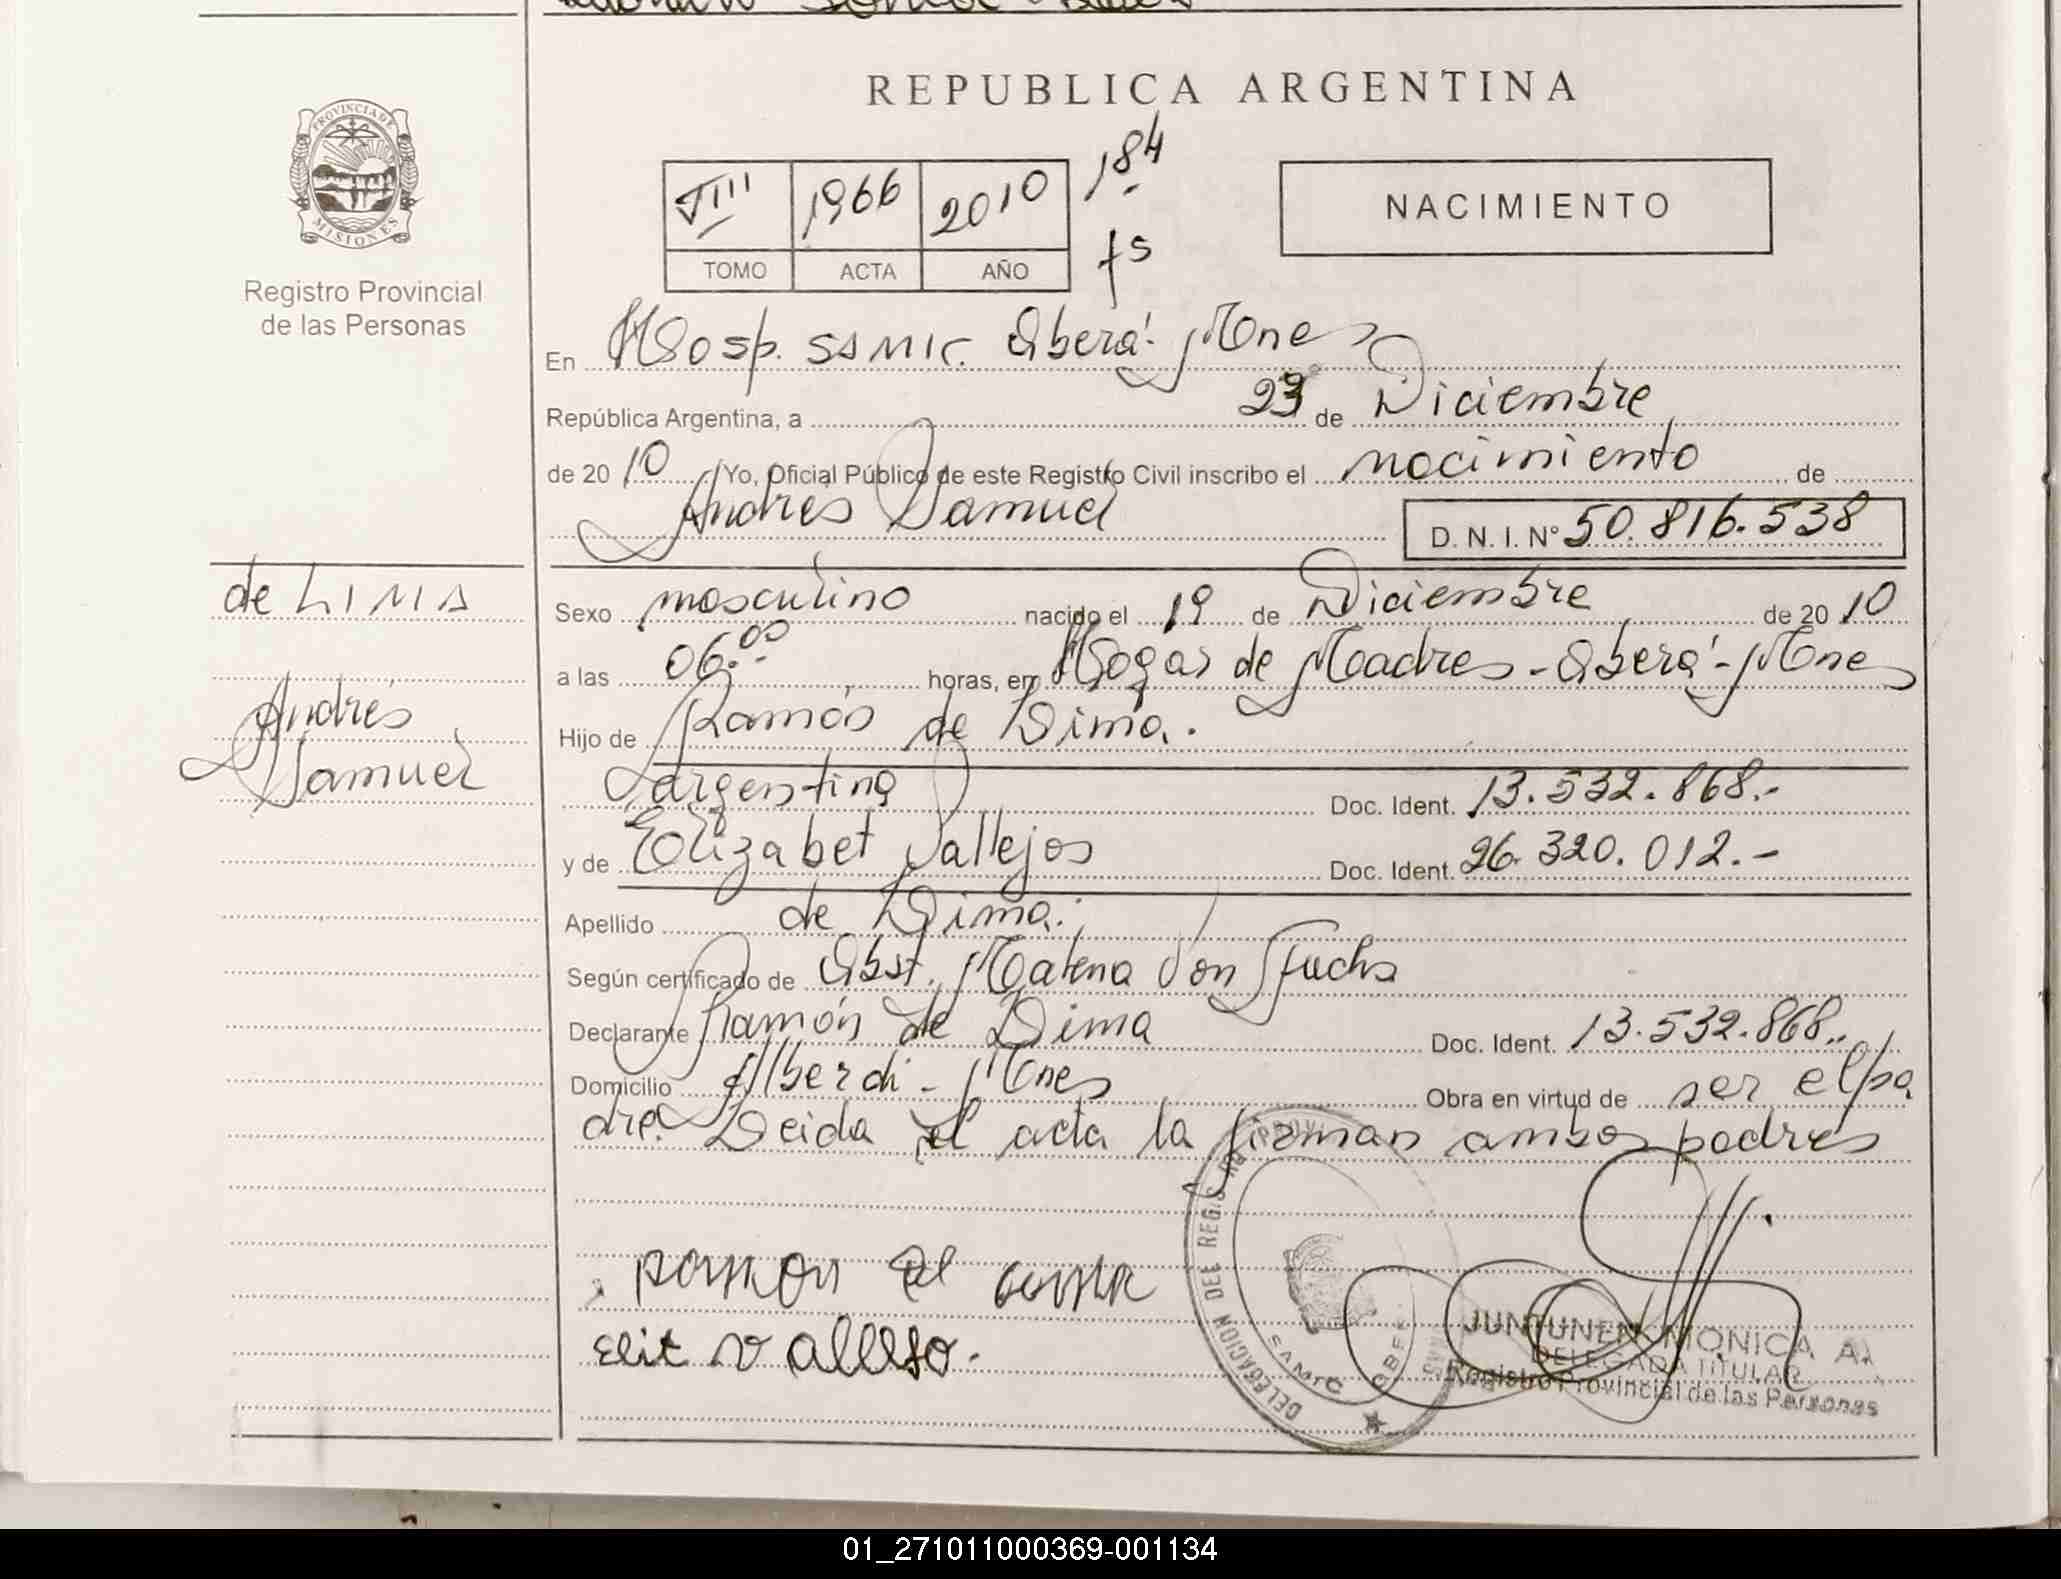 REPUBLICA ARGENTINA
PROVINCIA DE
MISIONES
Registro Provincial
de las Personas
VIII 1966 2010 184
TOMO ACTA AÑO fs
NACIMIENTO
En Hosp. SAMIC. Oberá - Mnes
República Argentina, a 23 de Diciembre
de 2010 Yo, Oficial Público de este Registro Civil inscribo el nacimiento de
Andrés Samuel D. N. I. N° 50.816.538
de LIMA
Andrés
Samuel
Sexo masculino nacido el 19 de Diciembre de 2010
a las 06.00 horas, en Hogar de Madres - Oberá - Mnes
Hijo de Ramón de Lima.
argentina Doc. Ident. 13.532.868.-
y de Elizabet Vallejos Doc. Ident. 26.320.012.-
Apellido de Lima.
Según certificado de Obst. Malena Von Fuchs
Declarante Ramón de Lima Doc. Ident. 13.532.868..
Domicilio Alberdi - Mnes Obra en virtud de ser el pa
dre. Leida el acta la firman ambos padres
Ramon de
Elit
DELEGACION DEL REGISTRO PROVI
SAMIC OBERA
JUNTUNEN MONICA A.
DELEGADA TITULAR
Registro Provincial de las Personas
01_271011000369-001134